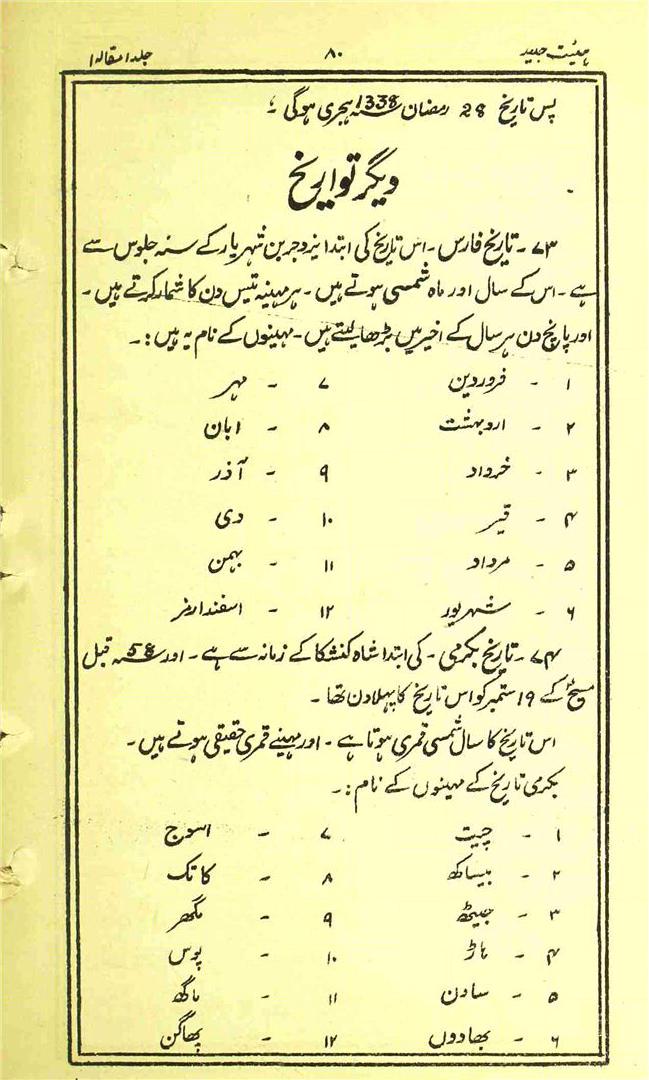 ہیئت جدید ۸۰ جلد ا مقالہ ا
پس تاریخ 28 رمضان 1338؁ ہجری ہوگی ۔
دیگر تواریخ
۷۳ ۔ تاریخ فارس ۔ اس تاریخ کی ابتدا یزدجرد بن شہریار کے سنہ جلوس سے
ہے ۔ اس کے سال اور ماہ شمسی ہوتے ہیں ۔ ہر مہینہ تیس دن کا شمار کرتے ہیں ۔
اور پانچ دن ہر سال کے اخیر میں بڑھا لیتے ہیں ۔ مہینوں کے نام یہ ہیں :۔
۱ ۔ فروردین ۷ ۔ مہر
۲ ۔ اردبہشت ۸ ۔ ابان
۳ ۔ خرداد ۹ ۔ آذر
۴ ۔ تیر ۱۰ ۔ دی
۵ ۔ مرداد ۱۱ ۔ بہمن
۶ ۔ شہریور ۱۲ ۔ اسفندارمز
۷۴ ۔ تاریخ بکرمی ۔ کی ابتدا شاہ کنشکا کے زمانہ سے ہے ۔ اور 58؁ قبل
مسیحؑ کے 19 ستمبر کو اس تاریخ کا پہلا دن تھا ۔
اس تاریخ کا سال شمسی قمری ہوتا ہے ۔ اور مہینے قمری حقیقی ہوتے ہیں ۔
بکرمی تاریخ کے مہینوں کے نام :۔
۱ ۔ چیت ۷ ۔ اسوج
۲ ۔ بیساکھ ۸ ۔ کاتک
۳ ۔ جیٹھ ۹ ۔ مگھر
۴ ۔ ہاڑ ۱۰ ۔ پوس
۵ ۔ ساون ۱۱ ۔ ماگھ
۶ ۔ بھادوں ۱۲ ۔ پھاگن